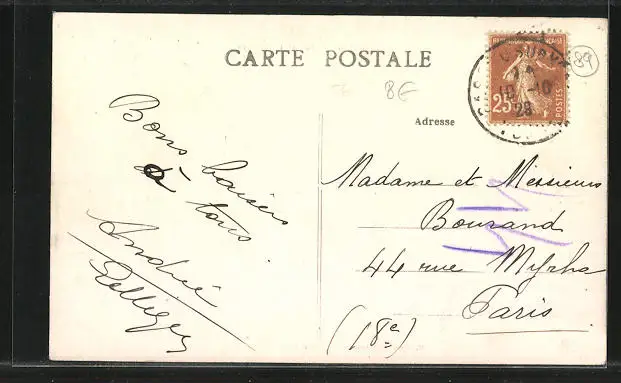 CARTE POSTALE
8€
89
RÉPUBLIQUE FRANÇAISE
25c
POSTES
10 -10
28
Adresse
Bons baisers
à tous.
Andrée
Madame et Messieurs
Bourand
44 rue Myrha
Paris
(18e)